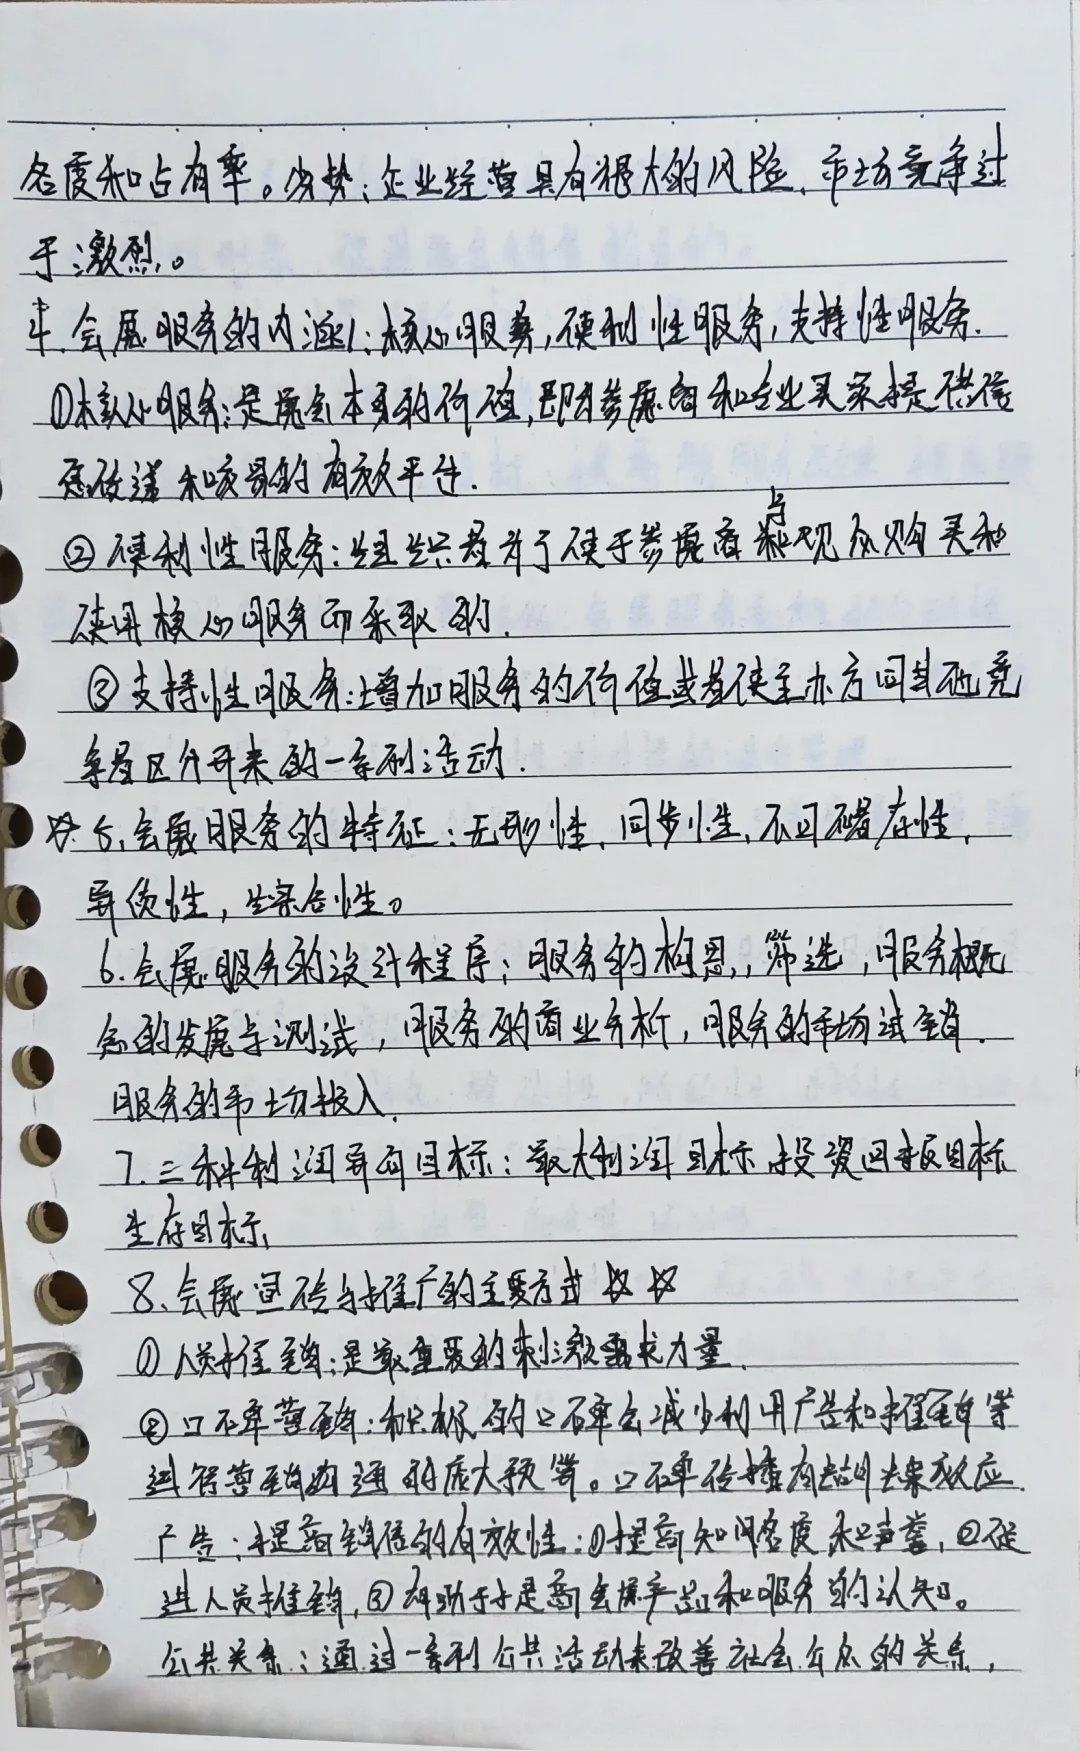 名度和占有率。劣势：企业经营具有很大的风险，市场竞争过
于激烈。
4. 会展服务的内涵：核心服务，便利性服务，支持性服务.
①核心服务：是展会本身的价值，即为参展商和专业买家提供信
息放送和贸易的有效平台.
②便利性服务：组织者为了便于参展商与观众购买和
使用核心服务而采取的.
③支持性服务：增加服务的价值或者使主办方同其他竞
争者区分开来的一系列活动.
5. 会展服务的特征：无形性，同步性，不可储存性，
异质性，综合性。
6. 会展服务的设计程序：服务的构思，筛选，服务概
念的发展与测试，服务的商业分析，服务的市场试销.
服务的市场投入.
7. 三种利润导向目标：最大利润目标，投资回报目标
生存目标，
8. 会展宣传与推广的主要方式
① 人员推销：是最重要的刺激需求力量.
② 口碑营销：积极的口碑会减少利用广告和推销等
进行营销沟通的庞大预算。口碑传播有
效应.
广告：提高销售的有效性：①提高知名度和声誉，②促
进人员推销，③有助于提高会展产品和服务的认知。
公共关系：通过一系列公共活动来改善社会公众的关系，